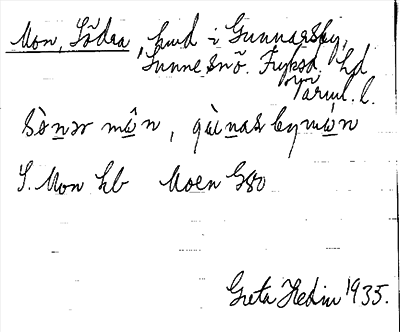 Mon, Södra, hmd i Gunnarsby,
Sunne snö. Fryksd. hd
Värml. l.
sò̱nər mo̱n, gu̱naṣbymo̱n
S. Mon hb Moen G80
Greta Hedin 1935.